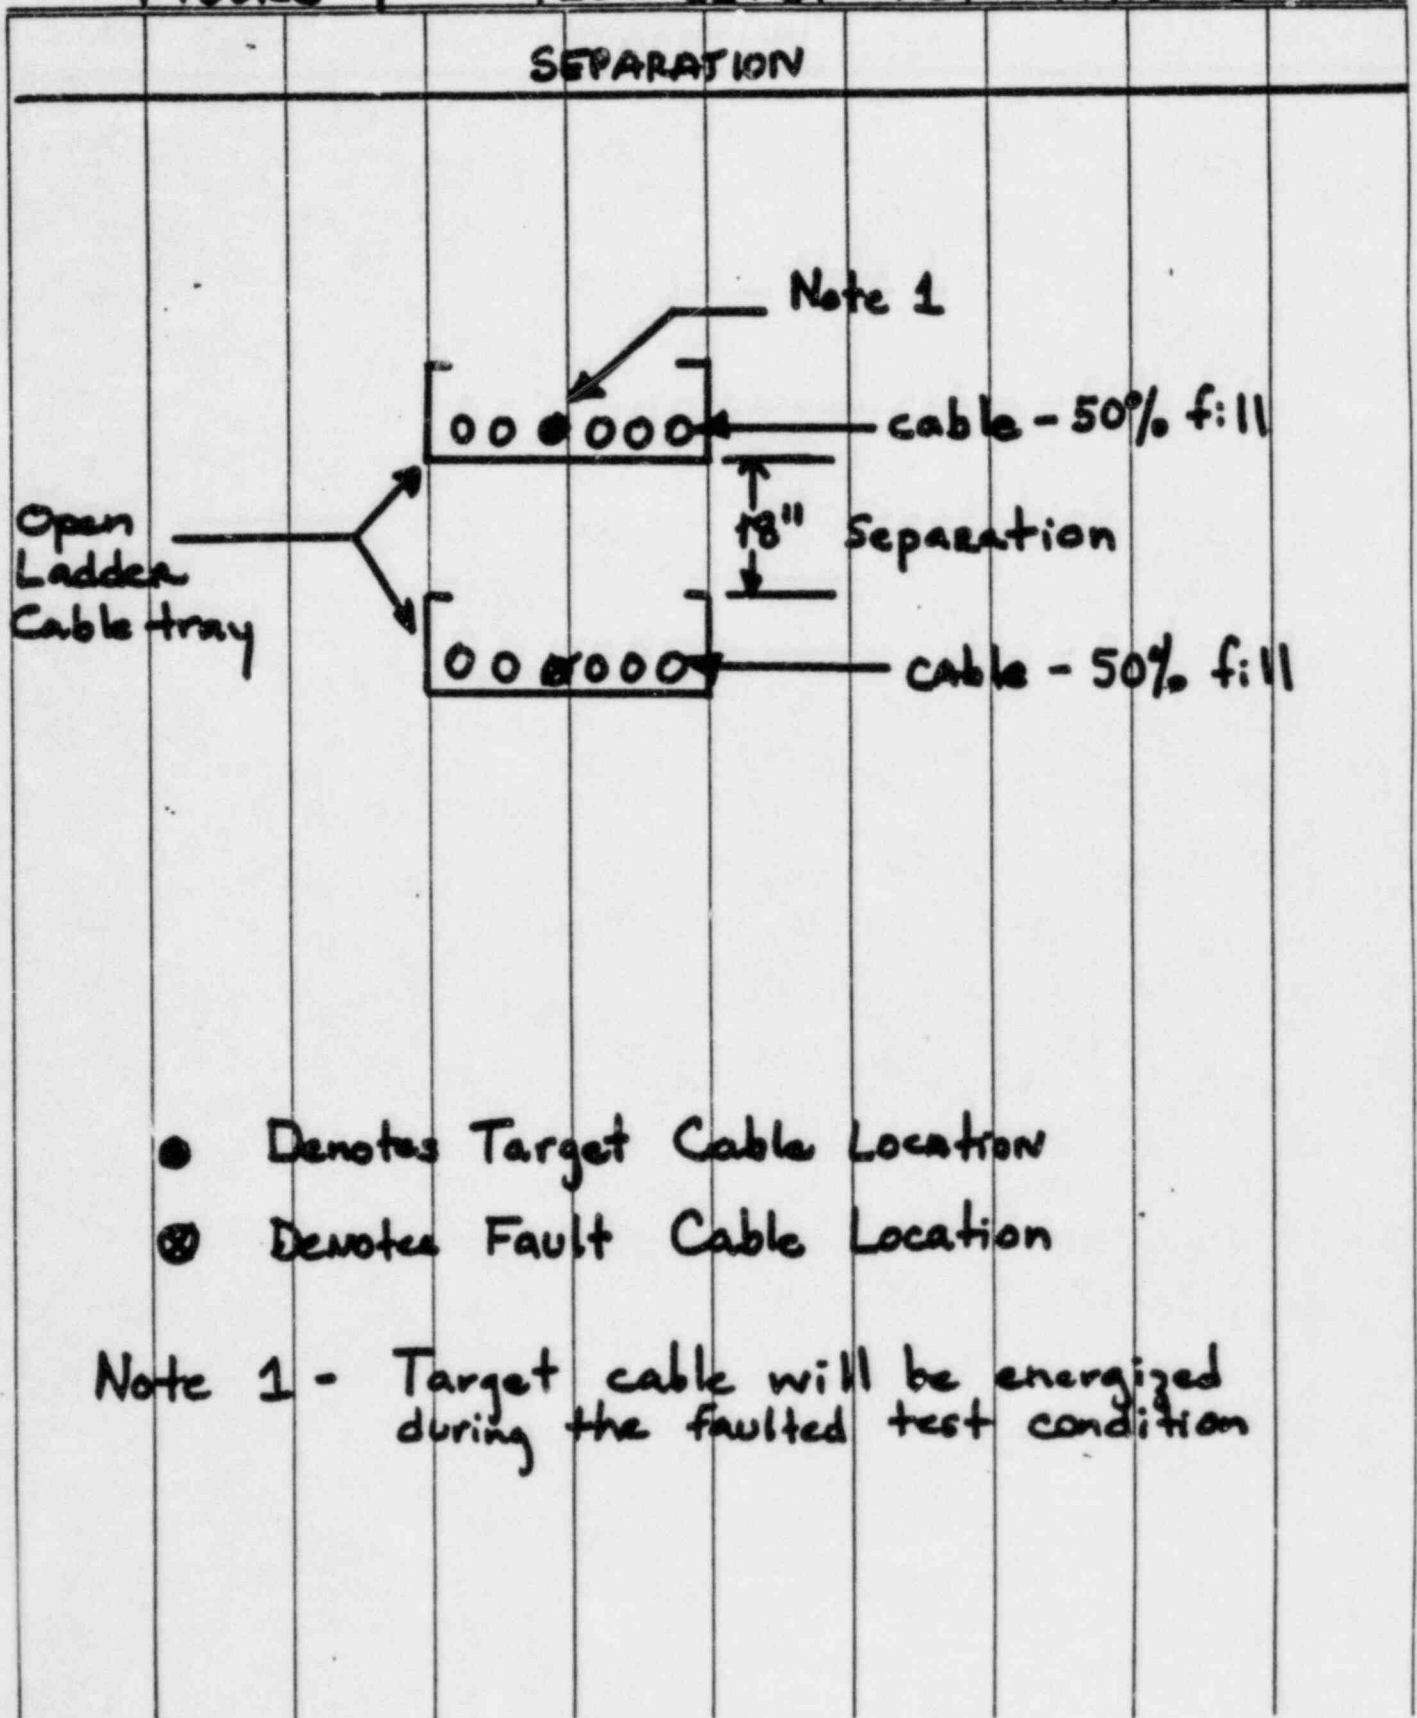 SEPARATION
Note 1
cable - 50% fill
Open
Ladder
Cable tray
18" Separation
cable - 50% fill
Denotes Target Cable Location
Denotes Fault Cable Location
Note 1 - Target cable will be energized
during the faulted test condition